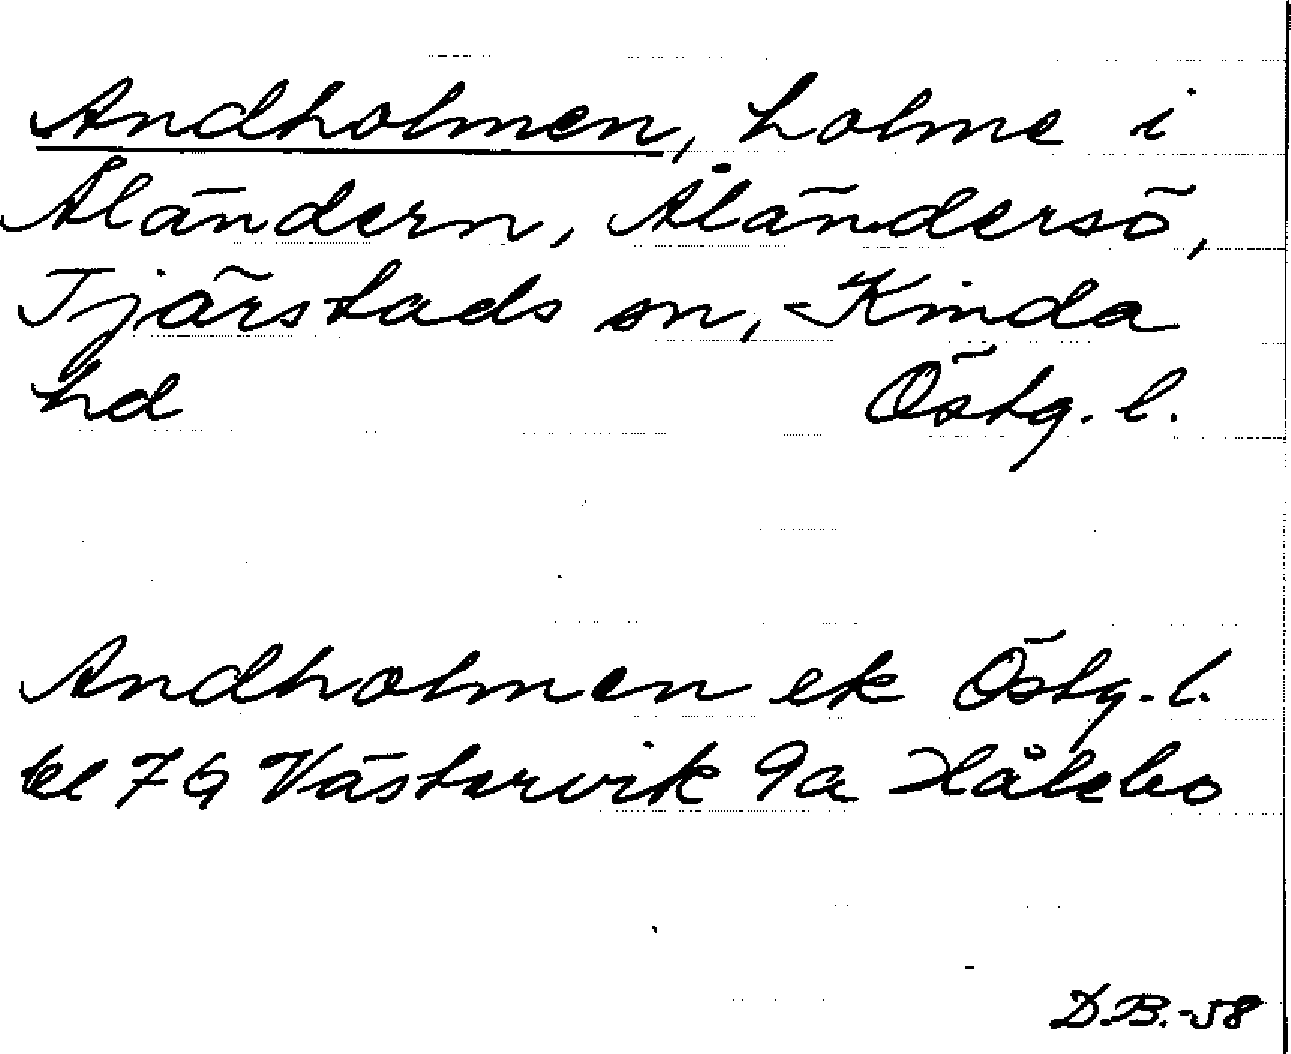 Andholmen, holme i
Åländern, Åländersö,
Tjärstads sn, Kinda
hd Östg. l.
Andholmen ek Östg. l.
bl 7G Västervik 9a Hålebo
D.B.-58